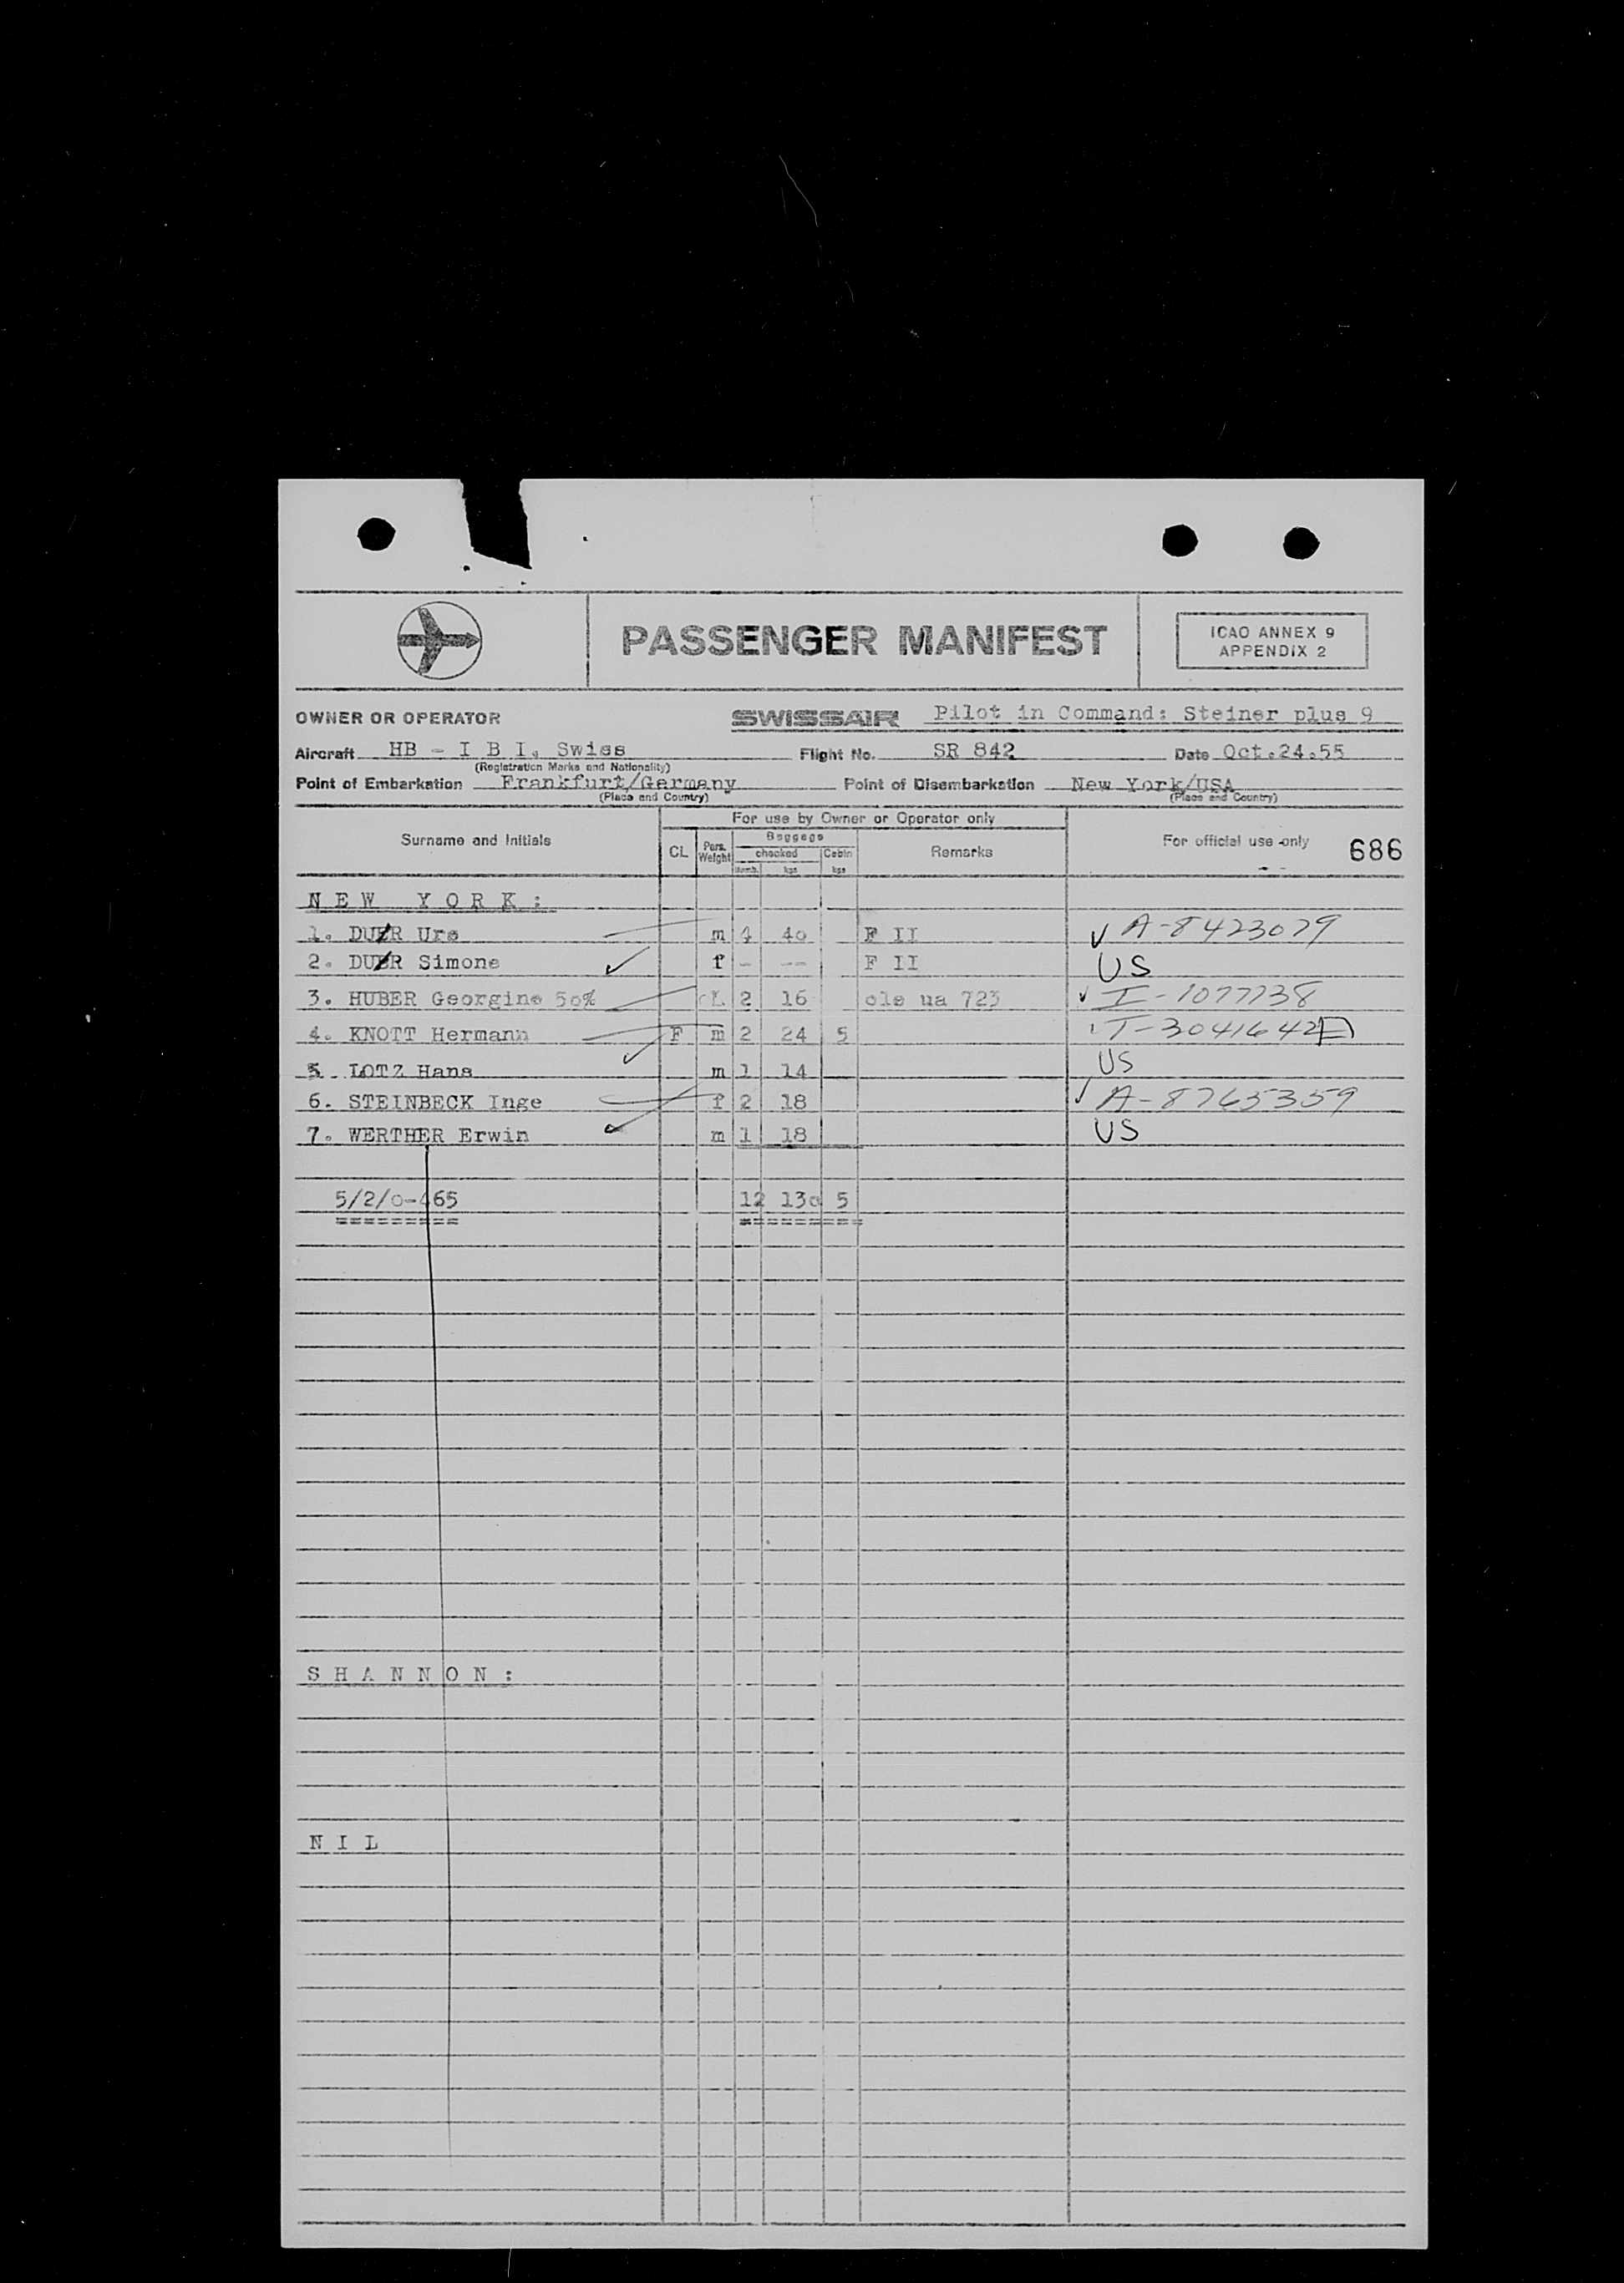 PASSENGER MANIFEST
ICAO ANNEX 9
APPENDIX 2
OWNER OR OPERATOR SWISSAIR Pilot in Command: Steiner plus 9
Aircraft HB - I B I, Swiss Flight No. SR 842 Date Oct.24.55
(Registration Marks and Nationality)
Point of Embarkation Frankfurt/Germany Point of Disembarkation New York/USA
(Place and Country) (Place and Country)
For use by Owner or Operator only
Surname and Initials CL Pers. Weight Baggage checked Numb. kgs Cabin kgs Remarks For official use only 686
N E W Y O R K :
1. DUER Urs m 4 40 F II A-8423079
2. DUER Simone f - -- F II US
3. HUBER Georgine 50% 2 16 ols ua 723 I-1077738
4. KNOTT Hermann F m 2 24 5 T-3041642
5. LOTZ Hans m 1 14 US
6. STEINBECK Inge f 2 18 A-8765359
7. WERTHER Erwin m 1 18 US
5/2/0-465 12 130 5
========= =========
S H A N N O N :
N I L